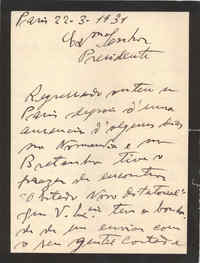 Paris 22-3-1931
Exmo Senhor
Presidente
Regressado ontem a
Paris depois d'uma
ausencia d'alguns dias
na Normandia e na
Bretanha tive o
prazer de encontrar
"O Estado Novo de
que V. Exa. teve a bonda-
de de me enviar com
o seu gentil cartão e